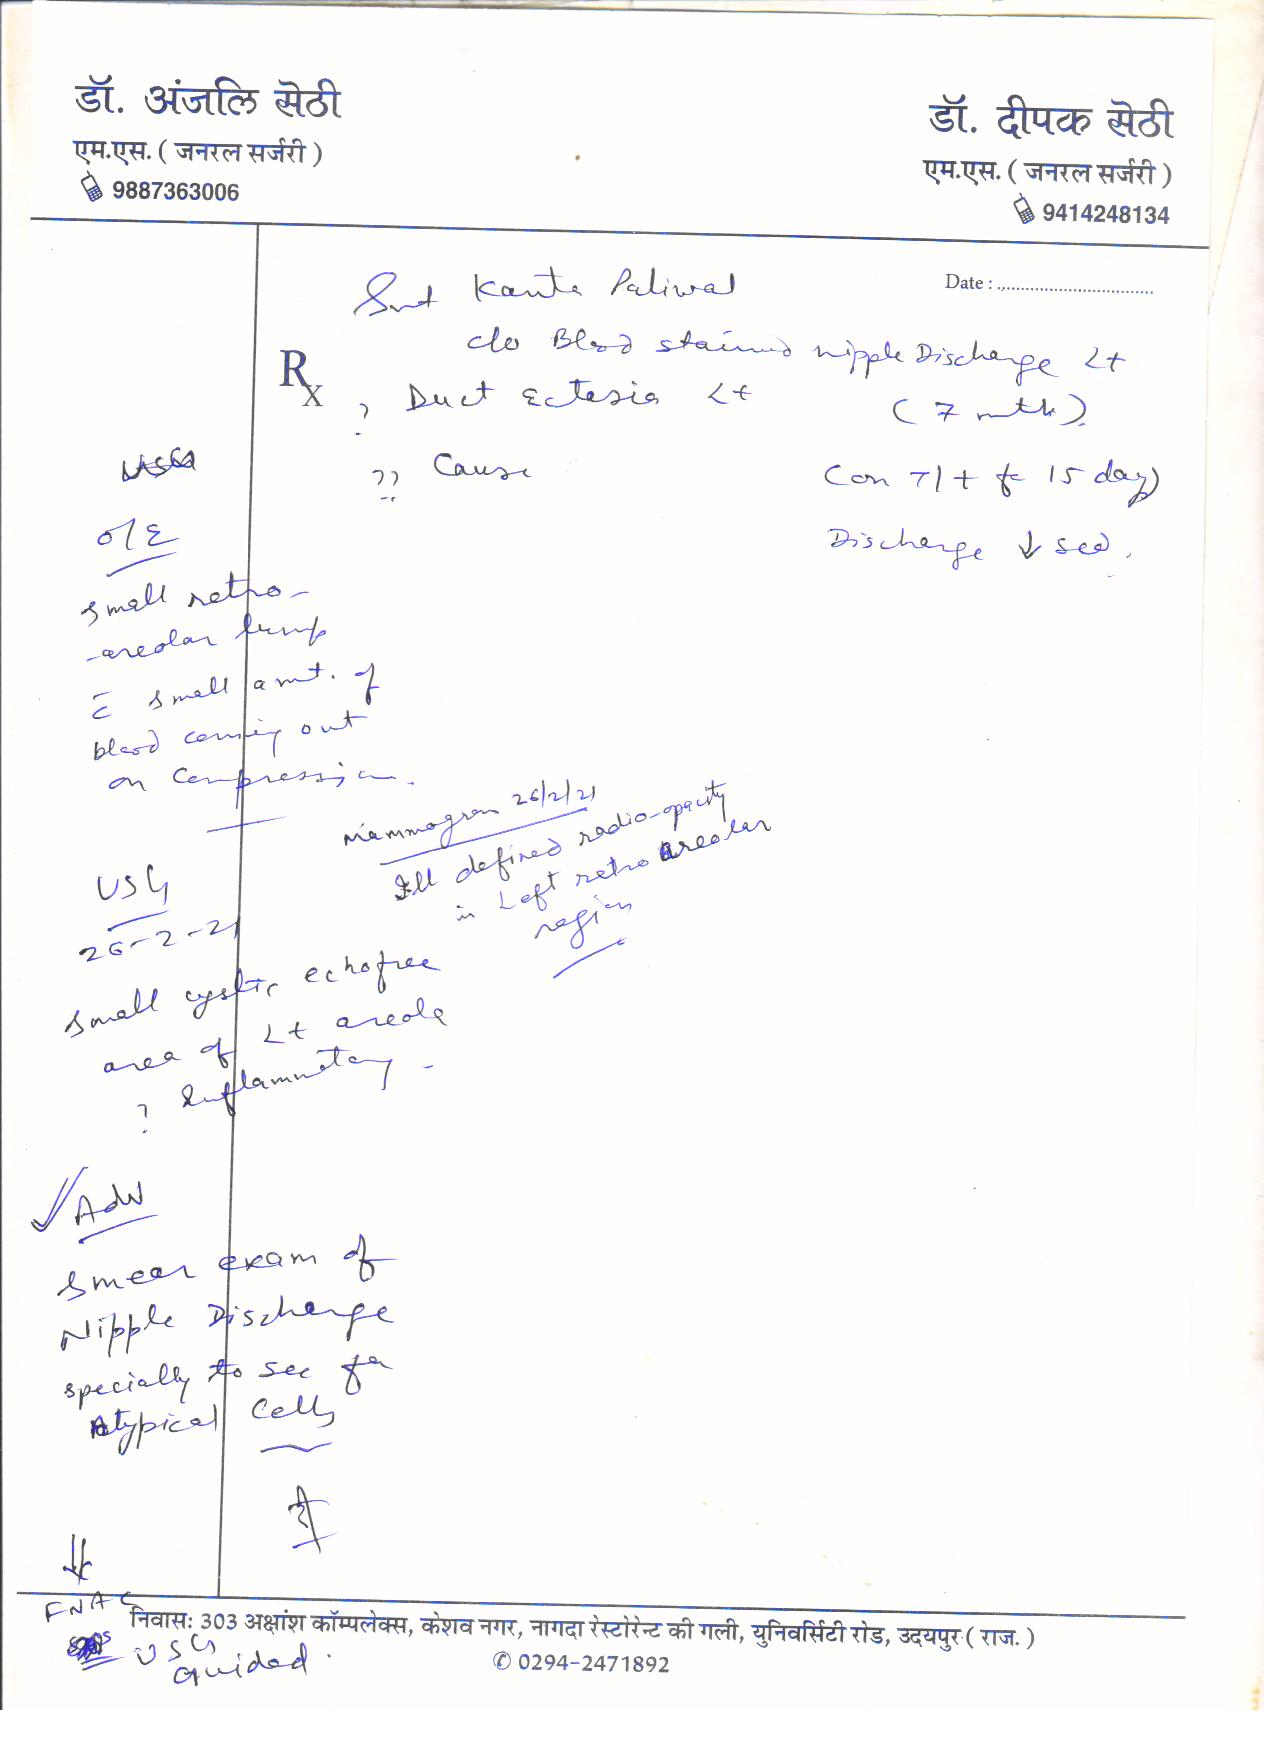 डॉ. अंजलि सेठी
एम.एस. ( जनरल सर्जरी )
9887363006
डॉ. दीपक सेठी
एम.एस. ( जनरल सर्जरी )
9414248134
Date : ................................
Smt Kanta Paliwal
c/o Blood stained nipple Discharge Lt
(7 mth)
Rx
? Duct Ectesia Lt
?? Cause
Con T/t f 15 days
Discharge ↓ sed.
O/E
small retro-
-areolar lump
c̄ small amt. of
blood coming out
on compression.
Mammogram 26/2/21
Ill defined radio-opacity
in Left retro areolar
region
USG
26-2-21
small cystic echofree
area of Lt areola
? Inflammatory -
Adv
Smear exam of
Nipple Discharge
specially to see for
Atypical Cells
⇓
FNAC
USG
guided.
निवास: 303 अक्षांश कॉम्पलेक्स, केशव नगर, नागदा रेस्टोरेन्ट की गली, युनिवर्सिटी रोड, उदयपुर ( राज. )
✆ 0294-2471892